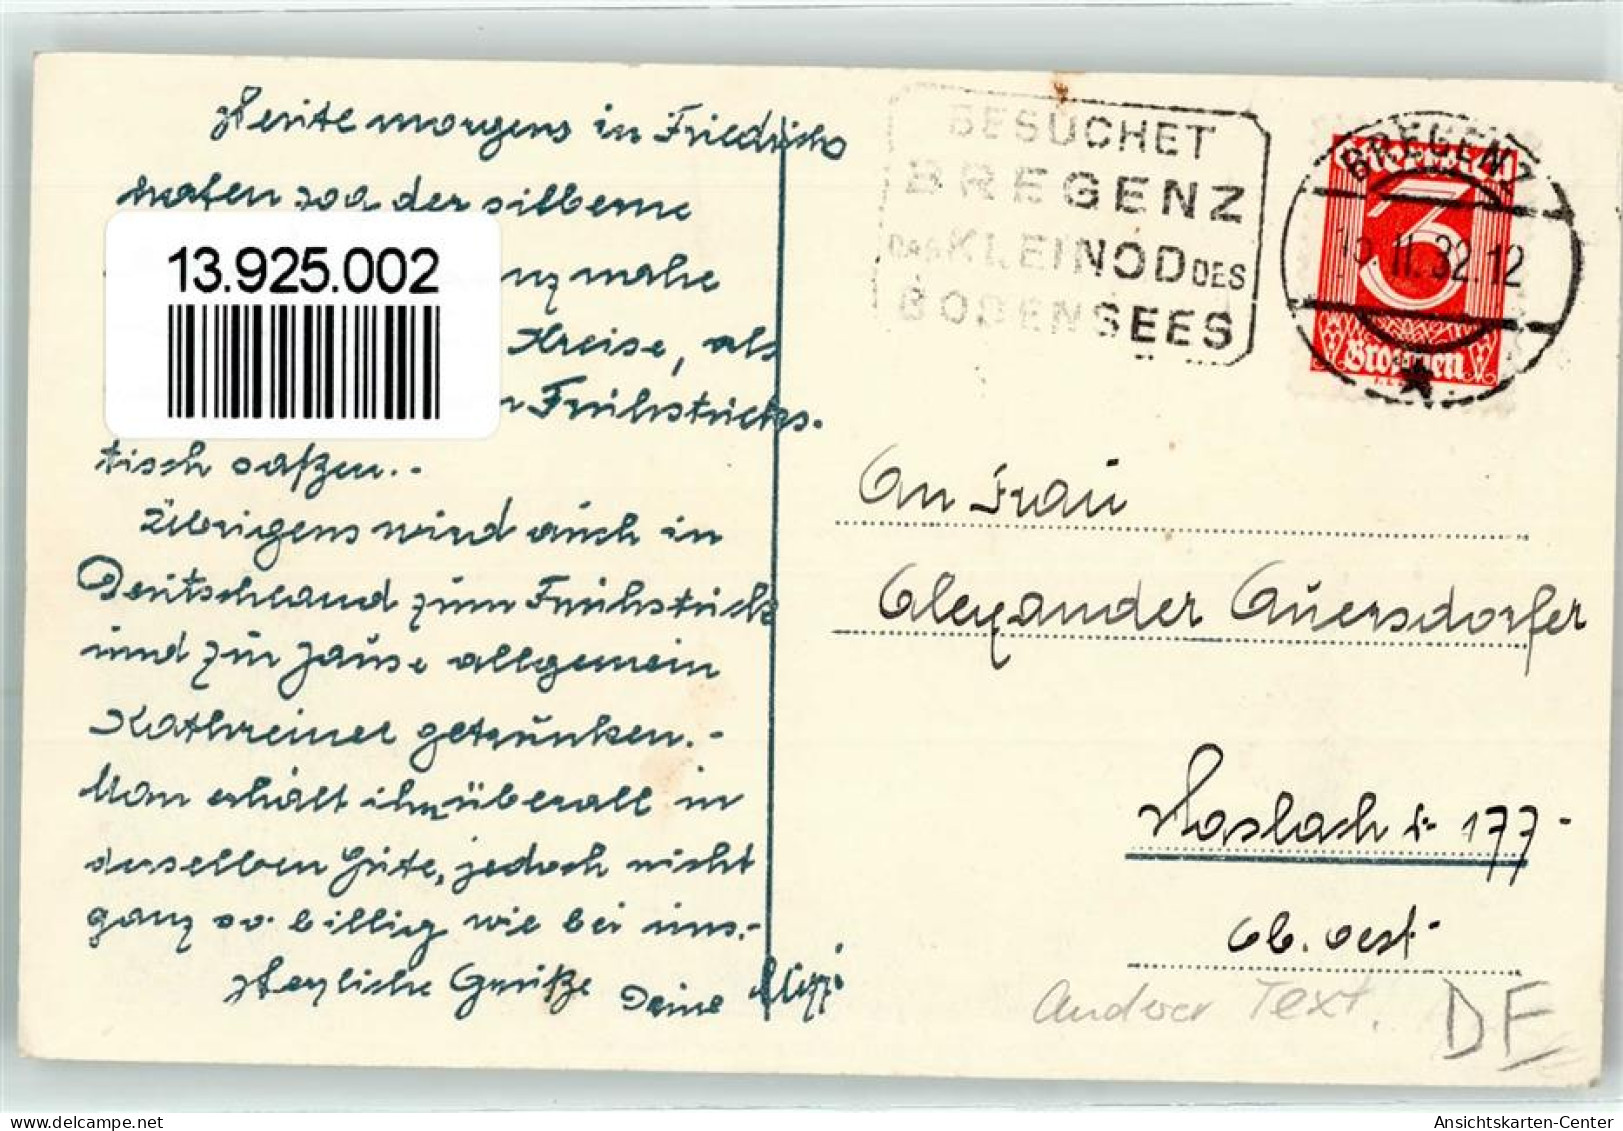 Heute morgens in Friedrichs
hafen zog der silberne
13.925.002
ganz nahe
Kreise, als
Frühstücks.
tisch saßen.-
Übrigens wird auch in
Deutschland zum Frühstück
und zur Jause allgemein
Kathreiner getrunken.-
Man erhält ihn überall in
derselben Güte, jedoch nicht
ganz so billig wie bei uns.-
Herzliche Grüße Deine Mizzi
BESUCHET
BREGENZ
DAS KLEINOD DES
BODENSEES
BREGENZ
11.32.12
3
Groschen
An Frau
Alexander Auersdorfer
Haslach 177-
Ob. Öst.
anderer Text.
DF
AnsichtsKarten-Center